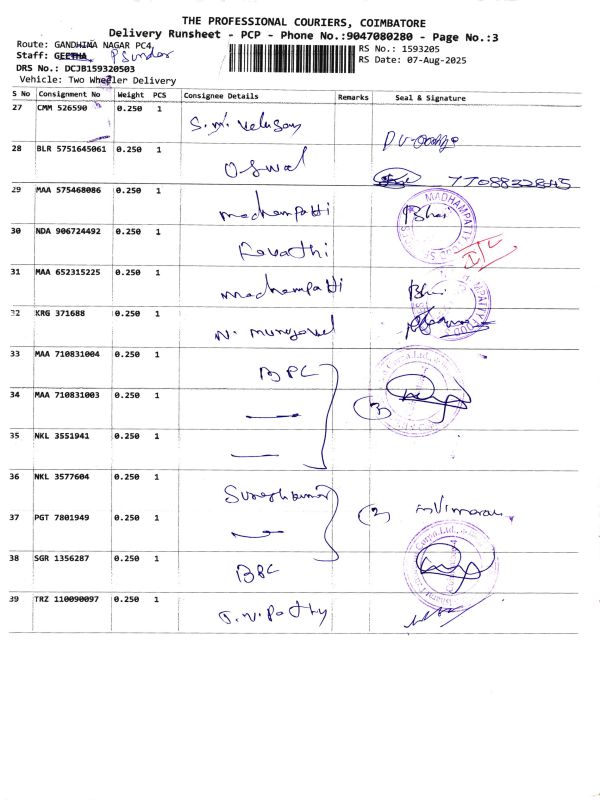 THE PROFESSIONAL COURIERS, COIMBATORE
Delivery Runsheet - PCP - Phone No.:9047080280 - Page No.:3
Route: GANDHIMA NAGAR PC4,
RS No.: 1593205
Staff: GEETHA P Sundar
RS Date: 07-Aug-2025
DRS No.: DCJB159320503
Vehicle: Two Wheeler Delivery
S No Consignment No Weight PCS Consignee Details Remarks Seal & Signature
27 CMM 526590 0.250 1 S.M. Velusamy
28 BLR 5751645061 0.250 1 Oswal 7708832845
29 MAA 575468086 0.250 1 Madhampatti Bhai
30 NDA 906724492 0.250 1 Revathi
31 MAA 652315225 0.250 1 Madhampatti Bhai
32 KRG 371688 0.250 1 N. Murugavel
33 MAA 710831004 0.250 1 BPC
34 MAA 710831003 0.250 1 — (3)
35 NKL 3551941 0.250 1 —
36 NKL 3577604 0.250 1 Sureshkumar
37 PGT 7801949 0.250 1 — (2)
38 SGR 1356287 0.250 1 BPC
39 TRZ 110090097 0.250 1